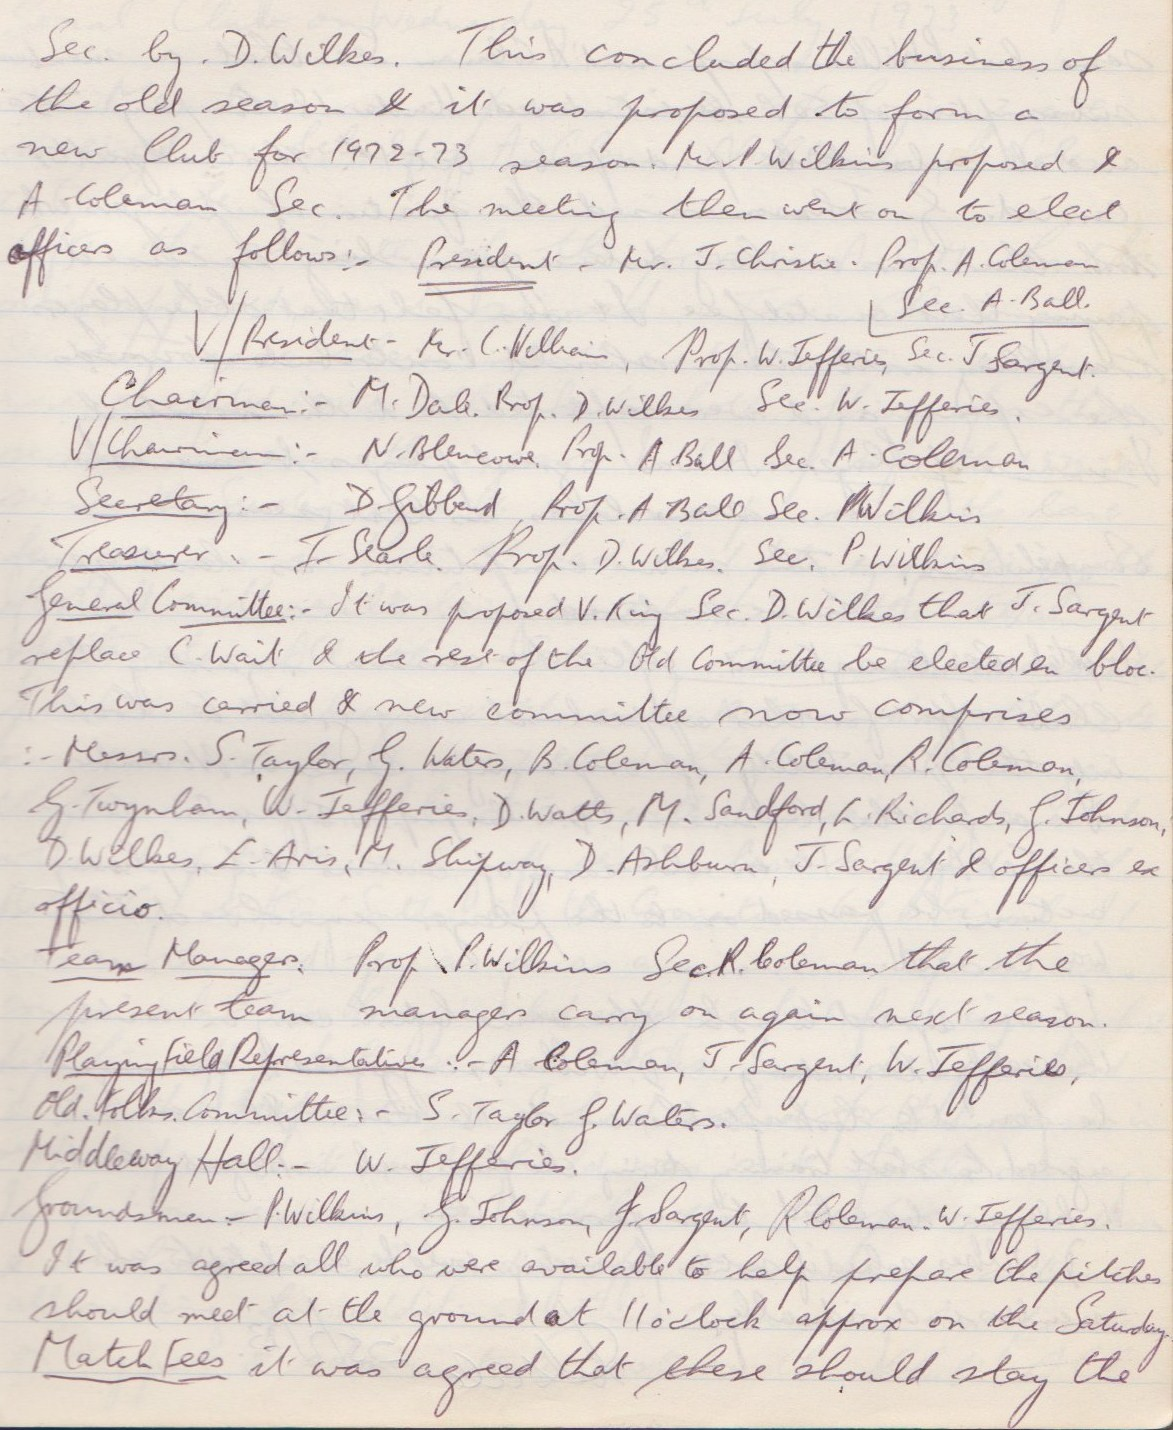 Sec. by. D. Wilkes. This concluded the business of
the old season & it was proposed to form a
new Club for 1972-73 season. Mr. P. Wilkins proposed &
A Coleman Sec. The meeting then went on to elect
officers as follows:- President - Mr. J. Christie. Prop. A. Coleman
Sec. A. Ball.
V/President - Mr. C. Prop. W. Jefferies, Sec. J Sargent.
Chairman:- M. Dale. Prop. D. Wilkes Sec. W. Jefferies.
V/Chairman:- N. Blencowe. Prop. A Ball Sec. A. Coleman
Secretary:- D Gibbard Prop. A Ball Sec. P Wilkins
Treasurer:- J. Searle. Prop. D. Wilkes. Sec. P. Wilkins
General Committee:- It was proposed V. King Sec. D. Wilkes that J. Sargent
replace C. Wait & the rest of the Old Committee be elected en bloc.
This was carried & new committee now comprises
:- Messrs. S. Taylor, G. Waters, B. Coleman, A. Coleman, R. Coleman,
G. Twynham, W. Jefferies, D. Watts, M. Sandford, L. Richards, G. Johnson,
D Wilkes, L. Aris, M. Shipway, D. Ashburn, J. Sargent & officers ex
officio.
Team Managers. Prop P. Wilkins Sec. R. Coleman that the
present team managers carry on again next season.
Playing Field Representatives:- A Coleman, J. Sargent, W. Jefferies,
Old. Folks. Committee:- S. Taylor G. Waters.
Middleway Hall:- W. Jefferies.
Groundsmen:- P. Wilkins, G. Johnson, J. Sargent, R Coleman. W. Jefferies.
It was agreed all who were available to help prepare the pitches
should meet at the ground at 11 o'clock approx on the Saturday.
Match Fees it was agreed that these should stay the